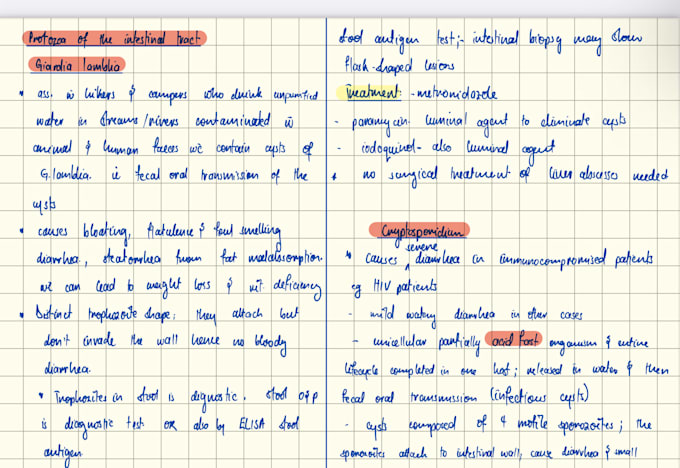 Protozoa of the intestinal tract
Giardia lamblia
• ass. w̄ hikers & campers who drink unpurified
water in streams/rivers contaminated w̄
animal & human faeces wc contain cysts of
G. lamblia. ie fecal oral transmission of the
cysts
• causes bloating, flatulence & foul smelling
diarrhea, steatorrhea from fat malabsorption.
wc can lead to weight loss & vit deficiency
• Distinct trophozoite shape; they attach but
don't invade the wall hence no bloody
diarrhea.
• Trophozoites in stool is diagnostic. Stool o&p
is diagnostic test or also by ELISA stool
antigen.
stool antigen test; - intestinal biopsy may show
flask-shaped lesions
Treatment: - metronidazole
- paromycin - luminal agent to eliminate cysts
- iodoquinol - also luminal agent
• no surgical treatment of liver abscesses needed
Cryptosporidium
severe
• causes ^ diarrhea in immunocompromised patients
eg HIV patients
- mild watery diarrhea in other cases
- unicellular partially acid fast organism & entire
lifecycle completed in one host; released in water & then
fecal oral transmission (infectious cysts)
- cysts composed of 4 motile sporozoites; the
sporozoites attach to intestinal wall, cause diarrhea & small